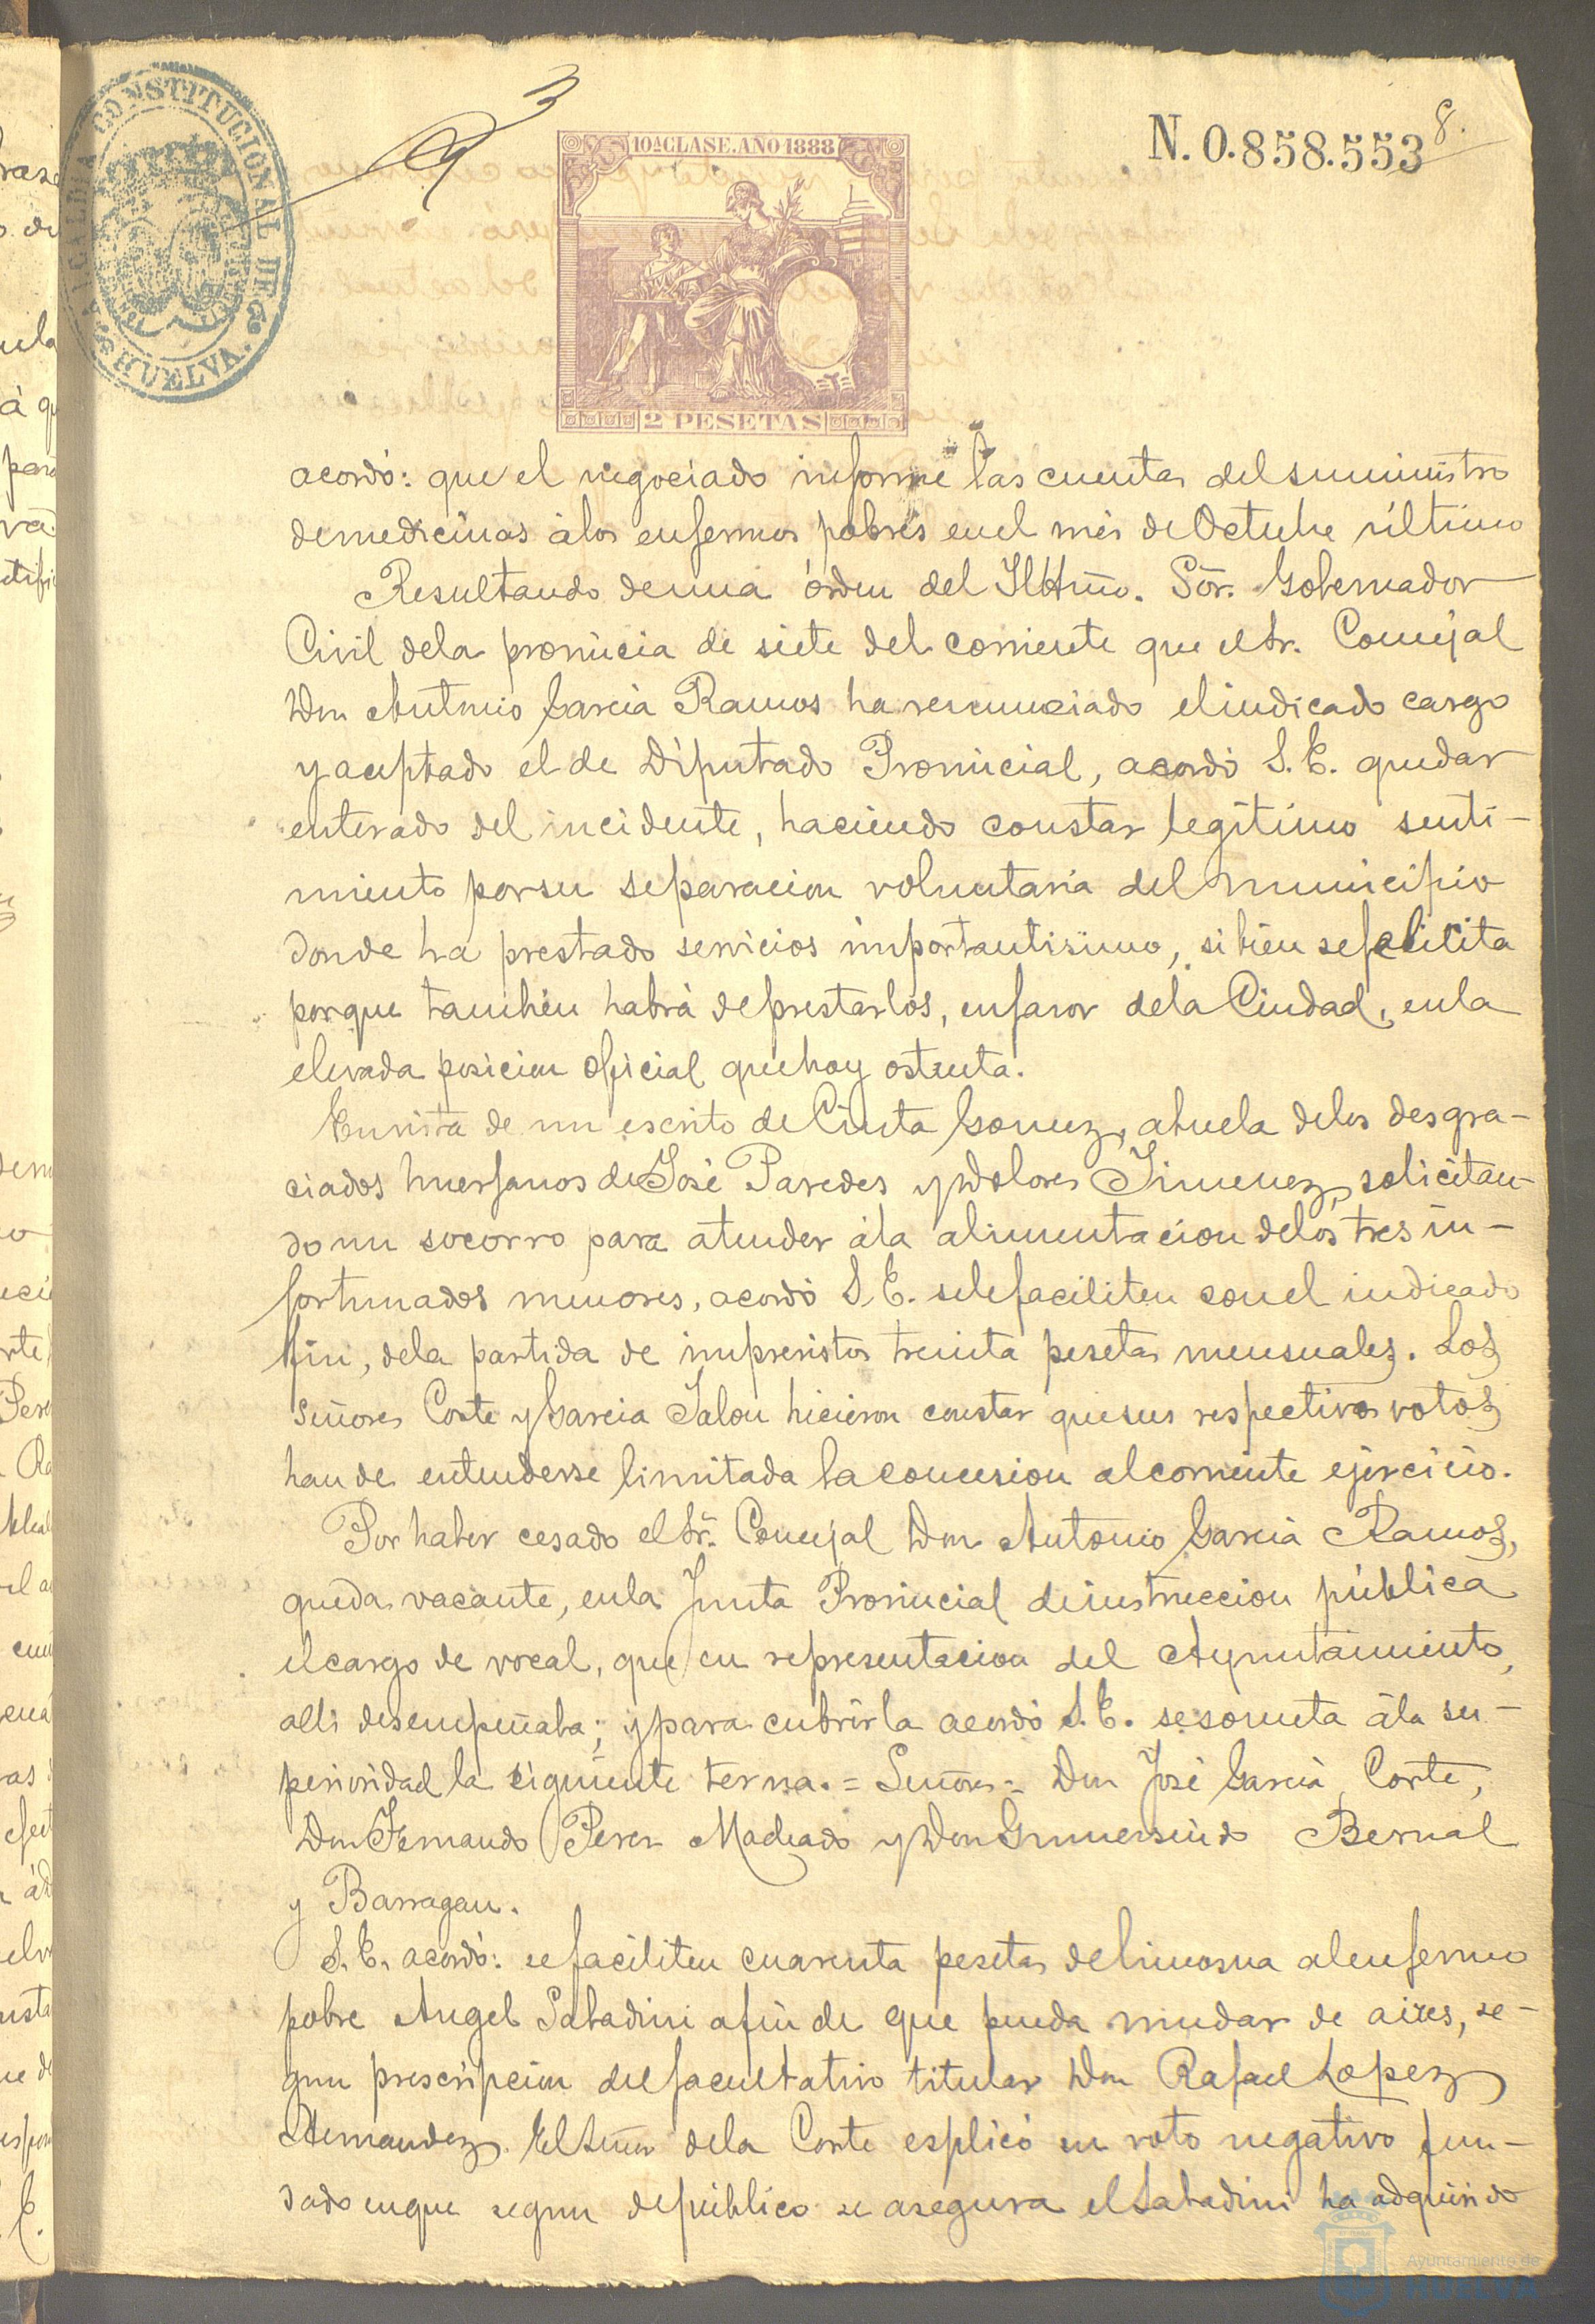 ALCALDIA CONSTITUCIONAL DE HUELVA.
3
10ª CLASE. AÑO 1888
N. 0.858.553
8.
2 PESETAS
acordó: que el negociado informe las cuentas del suministro
de medicinas á los enfermos pobres en el més de Octubre último
Resultando de una órden del Iltmo. Sõr. Gobernador
Civil dela provincia de siete del corriente que el Sr. Concejal
Don Antonio Garcia Ramos ha renunciado el indicado cargo
y aceptado el de Diputado Provincial, acordó S. E. quedar
enterado del incidente, haciendo constar legitimo senti-
miento por su separacion voluntaria del municipio
donde ha prestado servicios importantisimo, si bien se felicita
porque tambien habrá de prestarlos, en favor dela Ciudad, en la
elevada posicion oficial que hoy ostenta.
En vista de un escrito de Cinta Gomez, abuela delos desgra-
ciados huerfanos de José Paredes y Dolores Jimenez, solicitan-
do un socorro para atender á la alimentacion de los tres in-
fortunados menores, acordó S. E. se le faciliten con el indicado
fin, dela partida de imprevistos treinta pesetas mensuales. Los
Señores Corte y Garcia Jalon hicieron constar que sus respectivos votos
han de entenderse limitada la concesion al corriente ejercicio.
Por haber cesado el Sr. Concejal Don Antonio Garcia Ramos,
queda vacante, en la Junta Provincial de instruccion pública
el cargo de vocal, que en representacion del Ayuntamiento,
alli desempeñaba; y para cubrirla acordó S. E. se someta á la su-
perioridad la siguiente terna. = Señores = Don José Garcia Corte,
Don Fernando Perez Machado y Don Gumersindo Bernal
y Barragan.
S. E. acordó: se faciliten cuarenta pesetas de limosna al enfermo
pobre Angel Sabadini a fin de que pueda mudar de aires, se-
gun prescripcion del facultativo titular Don Rafael Lopez
Hernandez. El Señor dela Corte esplicó su voto negativo fun-
dado en que segun de público se asegura el Sabadini ha adquirido
Ayuntamiento de
HUELVA